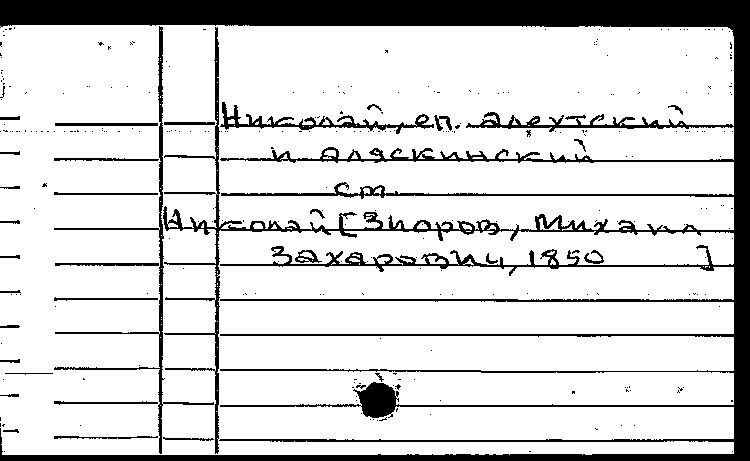 Николай, еп. алеутский
и аляскинский
см.
Николай [Зиоров, Михаил
Захарович, 1850 ]